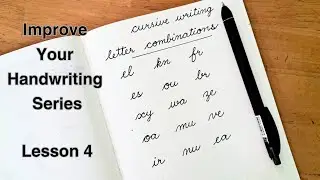 Improve
Your
Handwriting
Series
Lesson 4
cursive writing
letter combinations
el kn fr
es ou br
xy wa ze
oa mu ve
ir nu ea